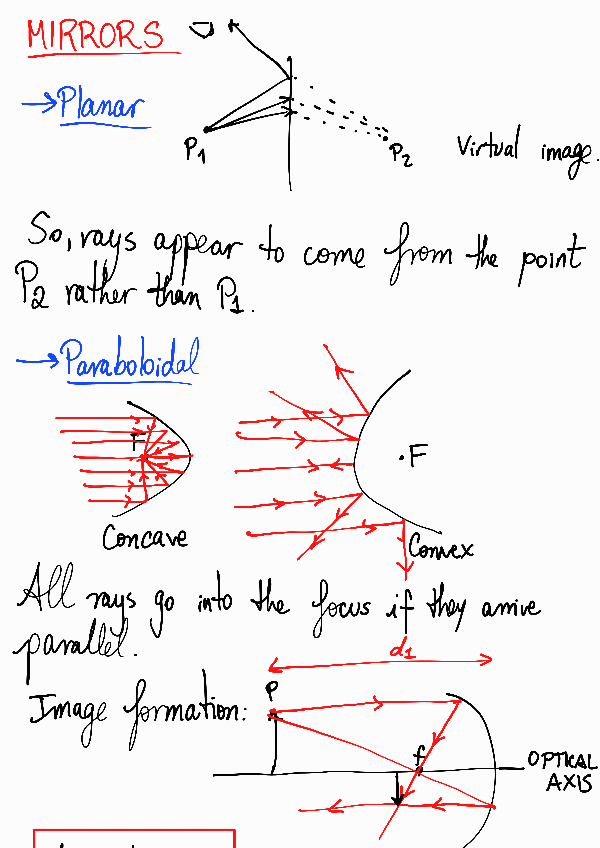 MIRRORS
→Planar
P1
P2
Virtual image.
So, rays appear to come from the point
P2 rather than P1.
→Paraboloidal
F
.F
Concave
Convex
All rays go into the focus if they arrive
parallel.
d1
Image formation:
P
f
OPTICAL
AXIS